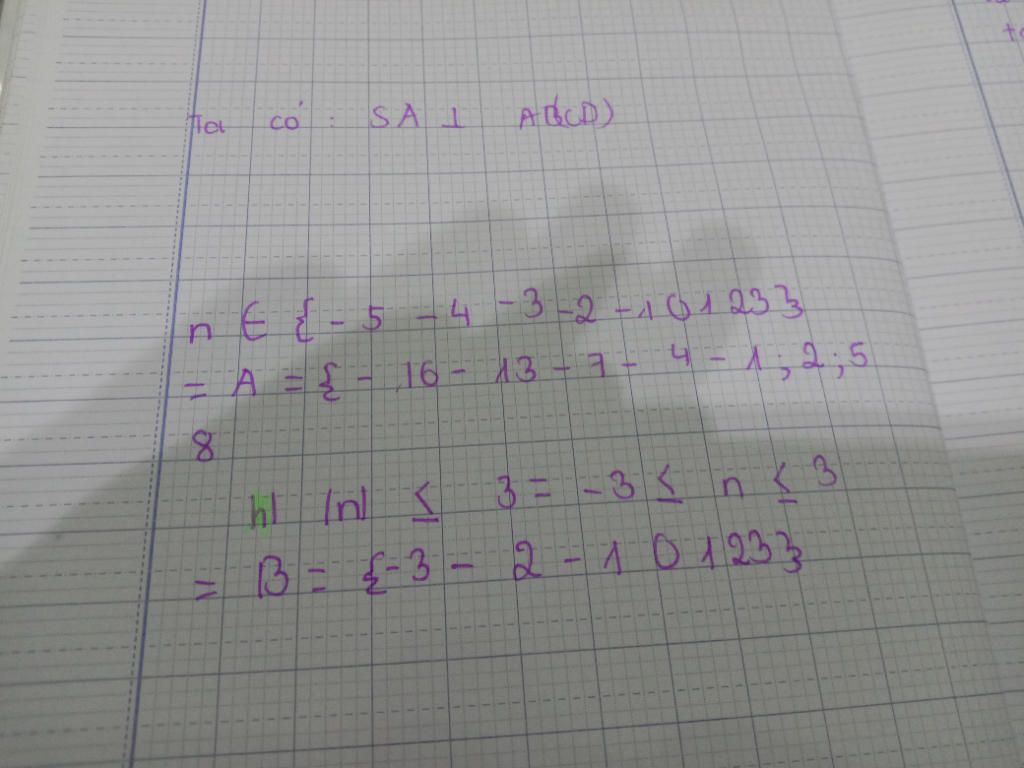 Ta có : SA ⊥ AB(CD)
n ∈ { - 5 - 4 - 3 - 2 - 1 0 1 2 3 }
= A = { - 16 - 13 - 7 - 4 - 1 ; 2 ; 5
8
h) |n| ≤ 3 = - 3 ≤ n ≤ 3
= B = { - 3 - 2 - 1 0 1 2 3 }